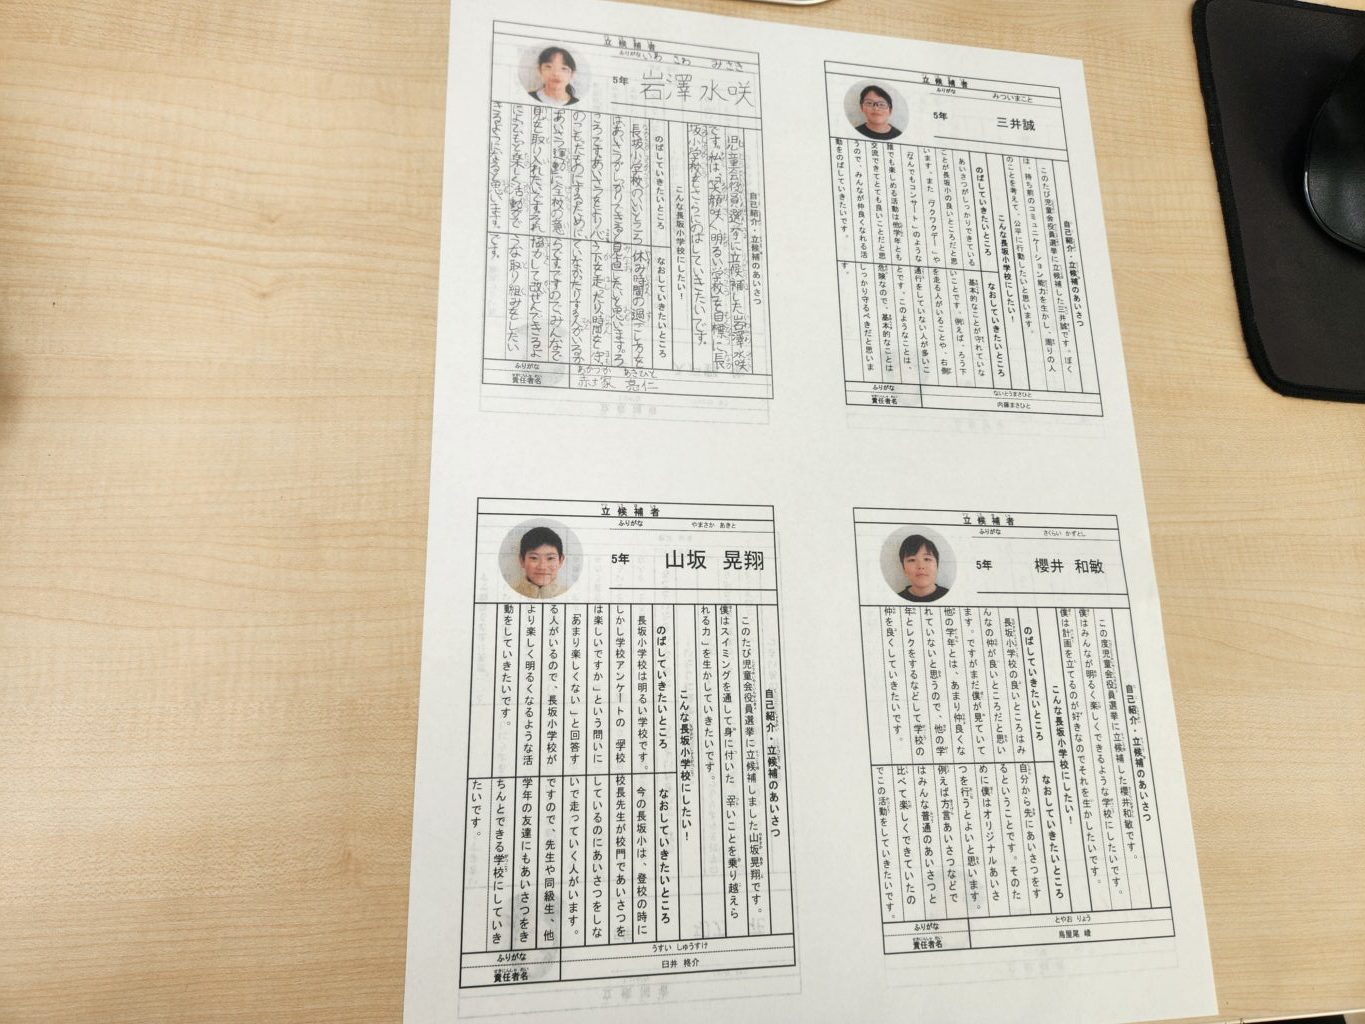 立候補者
ふりがな いわ さわ みさき
5年 岩澤 水咲
自己紹介・立候補のあいさつ
児童会役員選挙に立候補した岩澤水咲
です。私は「笑顔咲く明るい学校」を目標に長
坂小学校をさらにのばしていきたいです。
こんな長坂小学校にしたい!
のばしていきたいところ
長坂小学校のいいところ
はあいさつがしっかりできると
ころです。あいさつをよりよいも
あいさつ運動に全校の意
見を取り入れたいです。
きるようになると思います。
なおしていきたいところ
休み時間の過ごし方を
見直したいと思います。ろ
う下を走ったり、時間を守
ちです。ですのでみんなで
協力して改ぜんできるよ
うな取り組みをしたい
です。
ふりがな
責任者名
立候補者
ふりがな みついまこと
5年 三井誠
自己紹介・立候補のあいさつ
このたび児童会役員選挙に立候補した三井誠です。ぼく
は、持ち前のコミュニケーション能力を生かし、周りの人
のことを考えて、公平に行動したいと思います。
こんな長坂小学校にしたい!
のばしていきたいところ
あいさつがしっかりできている
ことが長坂小の良いところだと思
います。また「ワクワクデー」や
「なんでもコンサート」のような
誰でも楽しめる活動は他学年とも
交流できてとても良いことだと思
うので、みんなが仲良くなれる活
動をのばしていきたいです。
なおしていきたいところ
基本的なことが守れていな
いことです。例えば、ろう下
を走る人がいることや、右側
通行をしていない人が多いこ
とです。このようなことは、
危険なので、基本的なことは
しっかり守るべきだと思いま
す。
ふりがな ないとうまさひと
責任者名 内藤まさひと
立候補者
ふりがな やまさか あきと
5年 山坂 晃翔
自己紹介・立候補のあいさつ
このたび児童会役員選挙に立候補しました山坂晃翔です。
僕はスイミングを通して身に付いた「辛いことを乗り越えら
れる力」を生かしていきたいです。
こんな長坂小学校にしたい!
のばしていきたいところ
長坂小学校は明るい学校です。
しかし学校アンケートの「学校
は楽しいですか」という問いに
「あまり楽しくない」と回答す
る人がいるので、長坂小学校が
より楽しく明るくなるような活
動をしていきたいです。
なおしていきたいところ
今の長坂小は、登校の時に
校長先生が校門であいさつを
しているのにあいさつをしな
いで走っていく人がいます。
ですので、先生や同級生、他
学年の友達にもあいさつをき
ちんとできる学校にしていき
たいです。
ふりがな うすい しゅうすけ
責任者名 臼井 柊介
立候補者
ふりがな さくらい かずとし
5年 櫻井 和敏
自己紹介・立候補のあいさつ
この度児童会役員選挙に立候補した櫻井和敏です。
僕はみんなが明るく楽しくできるような学校にしたいです。
僕は計画を立てるのが好きなのでそれを生かしたいです。
こんな長坂小学校にしたい!
のばしていきたいところ
長坂小学校の良いところはみ
んなの仲が良いところだと思い
ます。ですがまだ僕が見ていて
他の学年とは、あまり仲良くな
れていないと思うので、他の学
年とレクをするなどして学校の
仲を良くしていきたいです。
なおしていきたいところ
自分から先にあいさつをす
るということです。そのた
めに僕はオリジナルあいさ
つを行うとよいと思います。
例えば方言あいさつなどで
はみんな普通のあいさつと
比べて楽しくできていたの
でこの活動をしていきたいです。
ふりがな とやお りょう
責任者名 鳥屋尾 崚